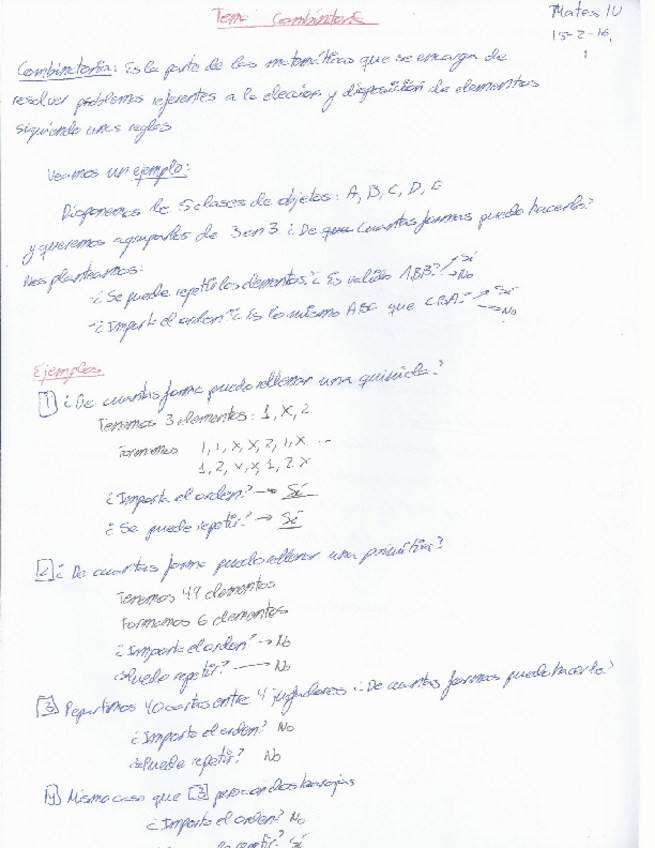 Tema: Combinatoria
Mates IV
15-2-16.
1
Combinatoria: Es la parte de las matemáticas que se encarga de
resolver problemas referentes a la elección y disposición de elementos
siguiendo unas reglas
Veamos un ejemplo:
Disponemos de 5 clases de objetos: A, B, C, D, E
y queremos agruparlos de 3 en 3 ¿De que cuantas formas puedo hacerlo?
Nos planteamos:
- ¿Se puede repetir los elementos? ¿Es valido ABB? Sí No
- ¿Importa el orden? ¿Es lo mismo ABC que CBA? Sí No
Ejemplos
1 ¿De cuantas forma puedo rellenar una quiniela?
Tenemos 3 elementos: 1, X, 2
Formamos 1, 1, X, X, 2, 1, X ...
1, 2, X, X, 1, 2 X
¿Importa el orden? → Sí
¿Se puede repetir? → Sí
2 ¿De cuantas forma puedo rellenar una primitiva?
Tenemos 49 elementos
Formamos 6 elementos
¿Importa el orden? → No
¿Puedo repetir? → No
3 Repartimos 40 cartas entre 4 jugadores ¿De cuantas formas puedo hacerlo?
¿Importa el orden? No
¿Puede repetir? No
4 Mismo caso que 3 pero con dos barajas
¿Importa el orden? No
repetir? Sí